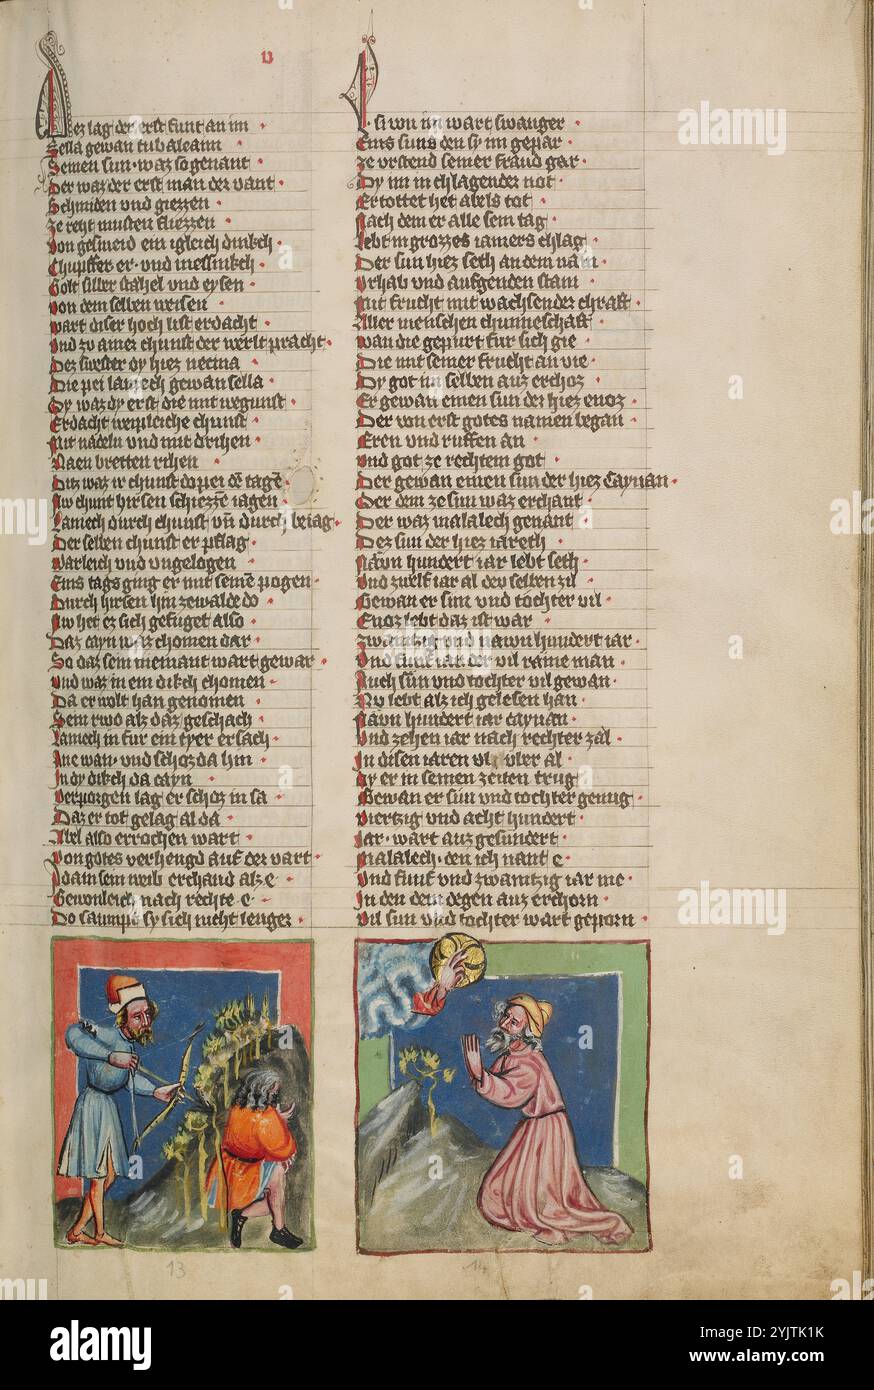 v
ez lag der erst funt an im
Sella gewan tubalcain
Seinen sun waz so genant
Der waz der erst man der vant
Schmiden vnd giezzen
ze reht musten fliezzen
von gesmeid ein igleich dinkch
Chupffer er vnd messinkch
Golt silber stahel vnd eysen
von dem selben weisen
wart diser hoch list erdacht
vnd zu amer chunst der werlt pracht
Dez swester dy hiez necma
Die pei lamech gewan sella
Sy waz dy erst die mit wegunst
Erdacht weipleiche chunst
Mit nadeln vnd mit drihen
Naen bretten rihen
Diz waz ir chunst do pei dē tagē
Iw chunt hirsen schiezzē iagen
Lamech durch chunst vn̄ durch beiag
Der selben chunst er pflag
Warleich vnd vngelogen
Eins tags ging er mit seinē pogen
Durch hirsen hin ze walde do
Nw het ez sich gefuget also
Daz cayn waz chomen dar
So daz sein niemant wart gewar
vnd waz in ein dikch chomen
Da er wolt han genomen
Sein rwo alz daz geschach
Lamech in fur ein tyer ersach
Ane wan vnd schoz da hin
In dy dikch da cayn
verporgen lag er schoz in sa
Daz er tot gelag al da
Abel also errochen wart
Von gotes verhengd auf der vart
Adam sein weib erchand alz e
Gewonleich nach rechte e
Do saumpt sy sich nicht lenger
si von im wart swanger
Eins suns den sy im gepar
ze vrstend seiner fraud gar
Dy im in chlagender not
Ertottet het abels tot
Nach dem er alle sein tag
Lebt in grozzes iamers chlag
Der sun hiez seth an dem nam
Vrhab vnd aufgenden stam
Mit frucht mit wachsender chraft
Aller menschen chunneschaft
wan die gepurt fur sich gie
Die mit seiner frucht an vie
Dy got im selben auz erchoz
Er gewan einen sun der hiez enoz
Der von erst gotes namen began
Eren vnd ruffen an
vnd got ze rechtem got
Der gewan einen sun der hiez Caynan
Der dem ze sun waz erchant
Der waz malalech genant
Dez sun der hiez iareth
Naŵn hundert iar lebt seth
vnd zwelf iar al den selben zil
Gewan er sun vnd tochter vil
Enoz lebt daz ist war
zwaintzig vnd nawn hundert iar
vnd funf iar der vil raine man
Auch sun vnd tochter vil gewan
Nv lebt alz ich gelesen han
Naŵn hundert iar caynan
vnd zehen iar nach rechter zal
In disen iaren vber al
dy er in seinen zeiten trug
Gewan er sun vnd tochter genug
viertzig vnd acht hundert
iar wart auz gesundert
Malalech den ich nant e
vnd funf vnd zwaintzig iar me
In den dem degen auz erchorn
Vil sun vnd tochter wart geporn
13
14
alamy
Image ID: 2YJTK1K
www.alamy.com